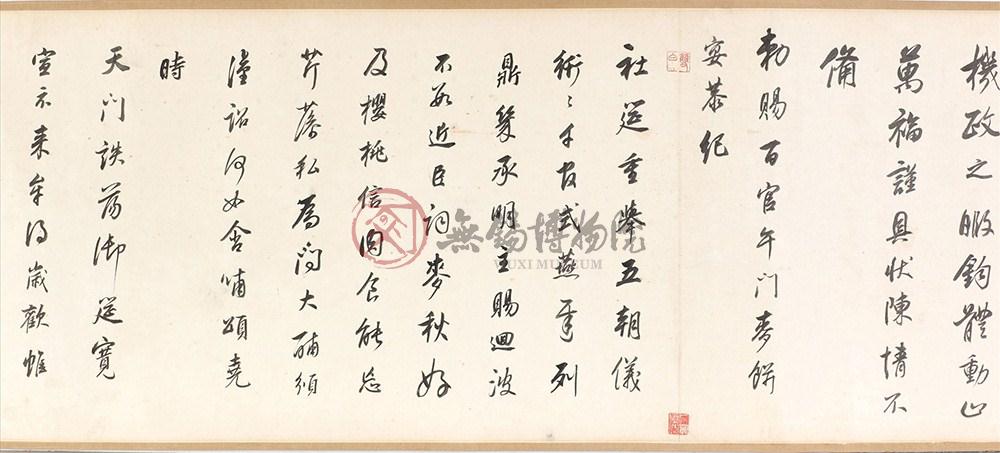 機政之暇鈞體動止
萬福謹具狀陳情不
備
勅賜百官午門麥餅
宴恭紀
社筵重舉五朝儀
術〻千官式燕耳列
鼎幾承明主賜迴波
不數近臣詞麥秋好
及櫻桃信閣食能忘
芹藻私為問大酺須
漢詔何如含哺頌堯
時
天門詄蕩御筵寬
宣示来牟得歲歡帷
無錫博物院
WUXI MUSEUM